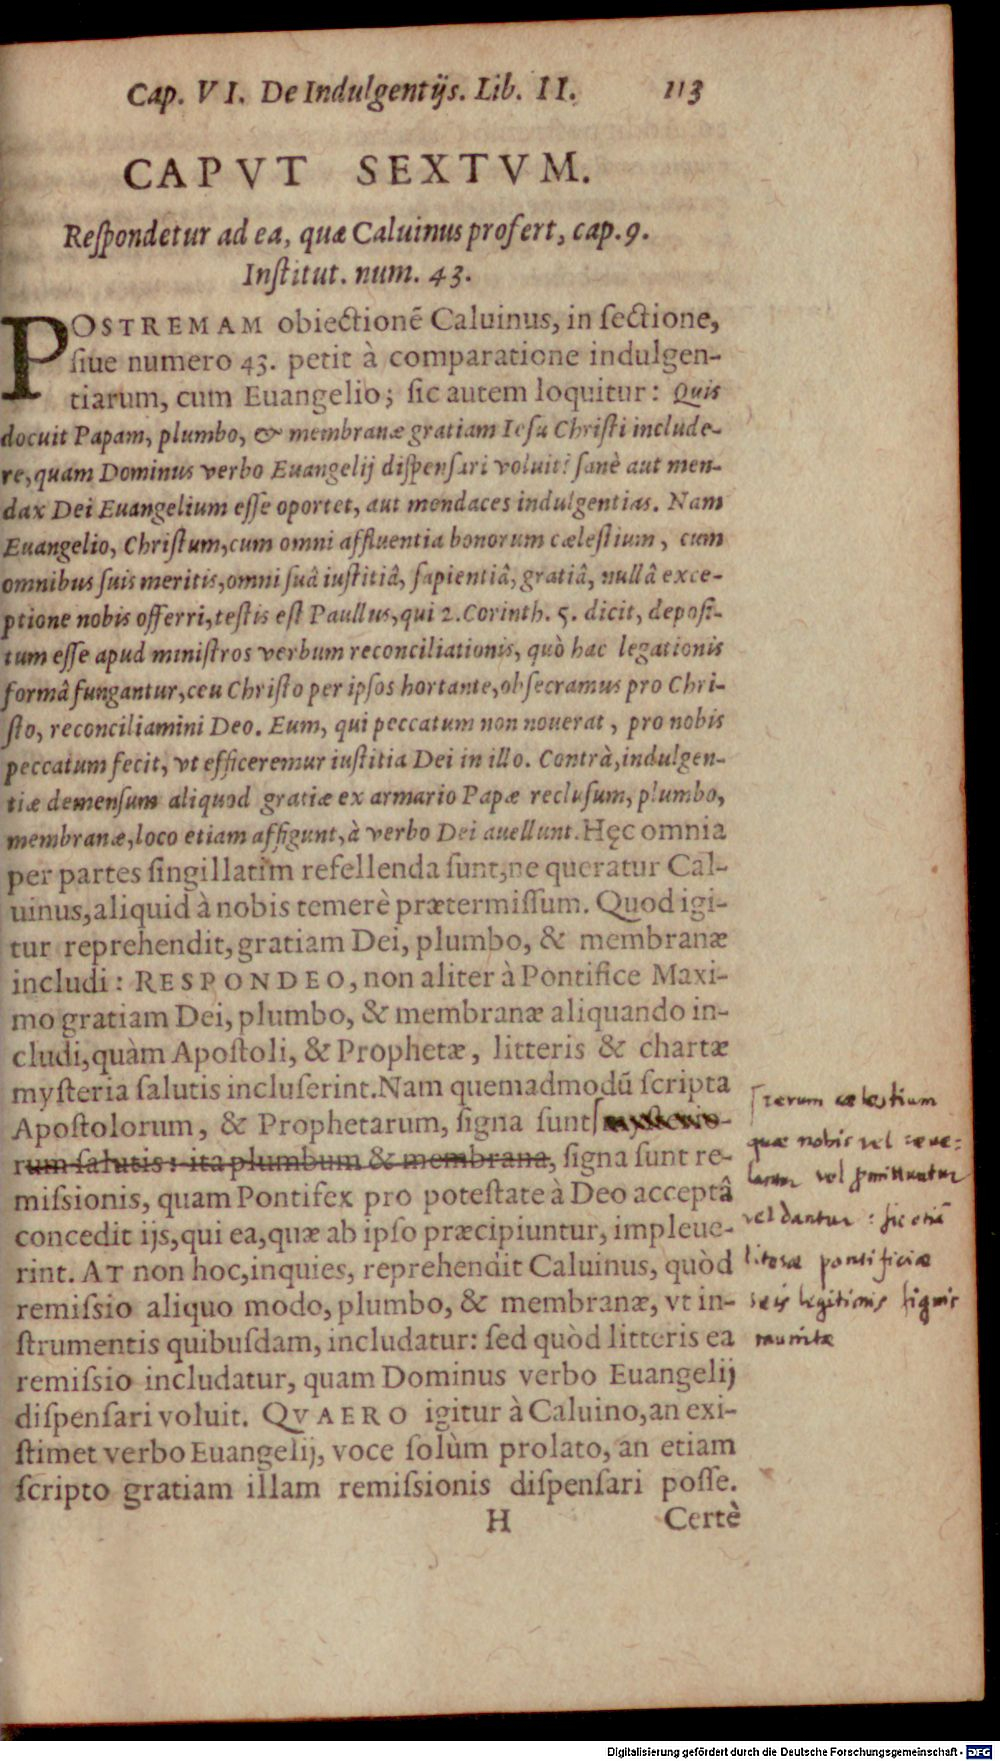 Cap. VI. De Indulgentijs. Lib. II. 113
CAPVT SEXTVM.
Reſpondetur ad ea, quæ Caluinus profert, cap. 9.
Inſtitut. num. 43.
POSTREMAM obiectionē Caluinus, in ſectione,
ſiue numero 43. petit à comparatione indulgen-
tiarum, cum Euangelio; ſic autem loquitur: Quis
docuit Papam, plumbo, & membranæ gratiam Ieſu Chriſti include-
re, quam Dominus verbo Euangelij diſpenſari voluit? ſanè aut men-
dax Dei Euangelium eſſe oportet, aut mendaces indulgentias. Nam
Euangelio, Chriſtum, cum omni affluentia bonorum cæleſtium, cum
omnibus ſuis meritis, omni ſuâ iuſtitiâ, ſapientiâ, gratiâ, nullâ exce-
ptione nobis offerri, teſtis eſt Paullus, qui 2. Corinth. 5. dicit, depoſi-
tum eſſe apud miniſtros verbum reconciliationis, quò hac legationis
formâ fungantur, ceu Chriſto per ipſos hortante, obſecramus pro Chri-
ſto, reconciliamini Deo. Eum, qui peccatum non nouerat, pro nobis
peccatum fecit, vt efficeremur iuſtitia Dei in illo. Contrà, indulgen-
tiæ demenſum aliquod gratiæ ex armario Papæ recluſum, plumbo,
membranæ, loco etiam affigunt, à verbo Dei auellunt. Hęc omnia
per partes ſingillatim refellenda ſunt, ne queratur Cal-
uinus, aliquid à nobis temerè prætermiſſum. Quod igi-
tur reprehendit, gratiam Dei, plumbo, & membranæ
includi: RESPONDEO, non aliter à Pontifice Maxi-
mo gratiam Dei, plumbo, & membranæ aliquando in-
cludi, quàm Apoſtoli, & Prophetæ, litteris & chartæ
myſteria ſalutis incluſerint. Nam quemadmodū ſcripta
Apoſtolorum, & Prophetarum, ſigna ſunt myſterio-
rum ſalutis: ita plumbum & membrana, ſigna ſunt re-
miſsionis, quam Pontifex pro poteſtate à Deo acceptâ
concedit ijs, qui ea, quæ ab ipſo præcipiuntur, impleue-
rint. AT non hoc, inquies, reprehendit Caluinus, quòd
remiſsio aliquo modo, plumbo, & membranæ, vt in-
ſtrumentis quibuſdam, includatur: ſed quòd litteris ea
remiſsio includatur, quam Dominus verbo Euangelij
diſpenſari voluit. QVAERO igitur à Caluino, an exi-
ſtimet verbo Euangelij, voce ſolùm prolato, an etiam
ſcripto gratiam illam remiſsionis diſpenſari poſſe.
H Certè
rerum cælestium
quæ nobis vel reve-
lantur vel promittuntur
vel dantur: sic etiā
literæ pontificiæ
suis legitimis signis
munitæ
Digitalisierung gefördert durch die Deutsche Forschungsgemeinschaft - DFG